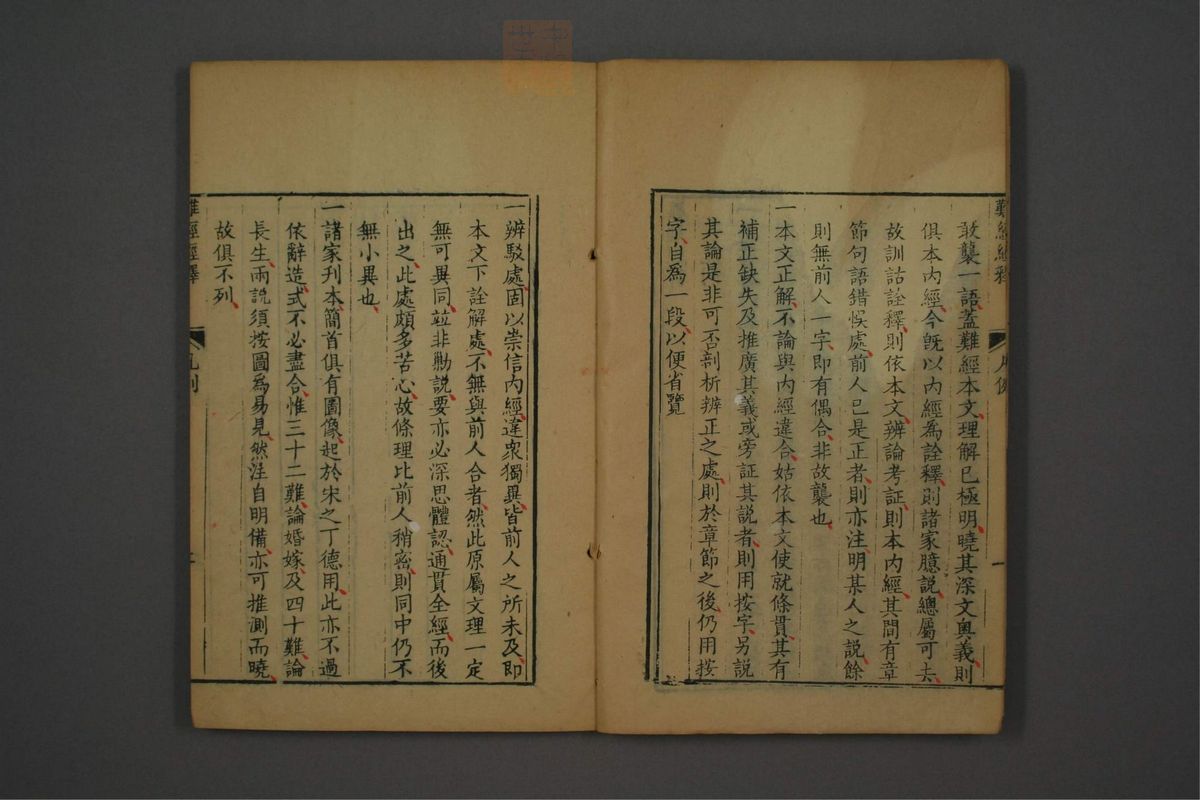 敢襲一語蓋難經本文理解已極明曉其深文奧義則
俱本內經今旣以內經為詮釋則諸家臆說總屬可去
故訓詁詮釋則依本文辨論考証則本內經其間有章
節句語錯悞處前人已是正者則亦注明某人之說餘
則無前人一字即有偶合非故襲也
一本文正解不論與內經違合姑依本文使就條貫其有
補正缺失及推廣其義或旁証其說者則用按字另說
其論是非可否剖析辨正之處則於章節之後仍用按
字自爲一段以便省覽
難經經釋
凡例
一
一辨駁處固以崇信內經違衆獨異皆前人之所未及即
本文下詮解處不無與前人合者然此原屬文理一定
無可異同竝非勦說要亦必深思體認通貫全經而後
出之此處頗多苦心故條理比前人稍密則同中仍不
無小異也
一諸家刋本簡首俱有圖像起於宋之丁德用此亦不過
依辭造式不必盡合惟三十二難論婚嫁及四十難論
長生兩說須按圖爲易見然注自明備亦可推測而曉
故俱不列
難經經釋
凡例
二